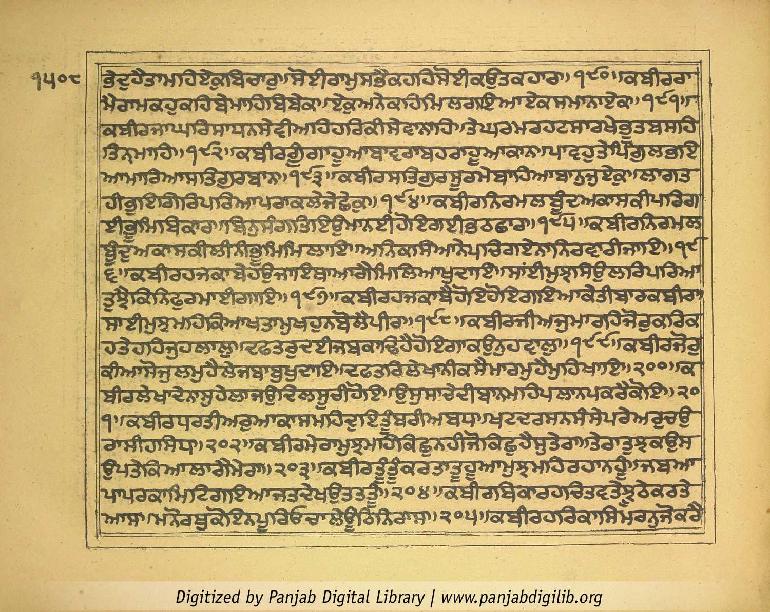 ੧੫੦੮ ਭੇਦੁਹੈਤਾਮਹਿਏਕੁਬਿਚਾਰੁ।ਸੋਈਰਾਮੁਸਭੈਕਹਹਿਸੋਈਕਉਤਕਹਾਰ॥੧੯੦॥ਕਬੀਰਰਾ
ਮੈਰਾਮਕਹੁਕਹਿਬੇਮਾਹਿਬਿਬੇਕ।ਏਕੁਅਨੇਕਹਿਮਿਲਗਇਆਏਕਸਮਾਨਾਏਕ॥੧੯੧॥
ਕਬੀਰਜਾਘਰਿਸਾਧਨਸੇਵੀਅਹਿਹਰਿਕੀਸੇਵਨਾਹਿ।ਤੇਘਰਮਰਹਟਸਾਰਖੇਭੂਤਬਸਹਿ
ਤਿਨਮਾਹਿ॥੧੯੨॥ਕਬੀਰਗੂੰਗਾਹੂਆਬਾਵਰਾਬਹਰਾਹੂਆਕਾਨ।ਪਾਵਹੁਤੇਪਿੰਗੁਲਭਇ
ਆਮਾਰਿਆਸਤਿਗੁਰਬਾਨ॥੧੯੩॥ਕਬੀਰਸਤਿਗੁਰਸੂਰਮੇਬਾਹਿਆਬਾਨੁਜੁਏਕੁ।ਲਾਗਤ
ਹੀਭੁਇਗਿਰਿਪਰਿਆਪਰਾਕਲੇਜੇਛੇਕੁ॥੧੯੪॥ਕਬੀਰਨਿਰਮਲਬੂੰਦਅਕਾਸਕੀਪਰਿਗ
ਈਭੂਮਿਬਿਕਾਰ।ਬਿਨੁਸੰਗਤਿਇਉਮਾਨਈਹੋਇਗਈਭਠਛਾਰ॥੧੯੫॥ਕਬੀਰਨਿਰਮਲ
ਬੂੰਦਅਕਾਸਕੀਲੀਨੀਭੂਮਿਮਿਲਾਇ।ਅਨਿਕਸਿਆਨੇਪਚਿਗਏਨਾਨਿਰਵਾਰੀਜਾਇ॥੧੯
੬॥ਕਬੀਰਹਜਕਾਬੇਹਉਜਾਇਥਾਆਗੈਮਿਲਿਆਖੁਦਾਇ।ਸਾਂਈਮੁਝਸਿਉਲਰਿਪਰਿਆ
ਤੁਝੈਕਿਨਿਫੁਰਮਾਈਗਾਇ॥੧੯੭॥ਕਬੀਰਹਜਕਾਬੈਹੋਇਹੋਇਗਇਆਕੇਤੀਬਾਰਕਬੀਰ।
ਸਾਈਮੁਝਮਹਿਕਿਆਖਤਾਮੁਖਹੁਨਬੋਲੈਪੀਰ॥੧੯੮॥ਕਬੀਰਜੀਅਜੁਮਾਰਹਿਜੋਰੁਕਰਿਕ
ਹਤੇਹਹਿਜੁਹਲਾਲੁ।ਦਫਤਰੁਦਈਜਬਕਾਢਿਹੈਹੋਇਗਾਕਉਨੁਹਵਾਲੁ॥੧੯੯॥ਕਬੀਰਜੋਰੁ
ਕੀਆਸੋਜੁਲਮੁਹੈਲੇਜਬਾਬੁਖੁਦਾਇ।ਦਫਤਰਿਲੇਖਾਨੀਕਸੈਮਾਰਮੁਹੈਮੁਹਿਖਾਇ॥੨੦੦॥ਕ
ਬੀਰਲੇਖਾਦੇਨਾਸੁਹੇਲਾਜਉਦਿਲਸੂਚੀਹੋਇ।ਉਸੁਸਾਚੇਦੀਬਾਨਮਹਿਪਲਾਨਪਕਰੈਕੋਇ॥੨੦
੧॥ਕਬੀਰਧਰਤੀਅਰੁਆਕਾਸਮਹਿਦੁਇਤੂੰਬਰੀਅਬਧ।ਖਟਦਰਸਨਸੰਸੇਪਰੇਅਰੁਚਉ
ਰਾਸੀਹਸਿਧ॥੨੦੨॥ਕਬੀਰਮੇਰਾਮੁਝਮਹਿਕਿਛੁਨਹੀਜੋਕਿਛੁਹੈਸੁਤੇਰਾ।ਤੇਰਾਤੁਝਕਉਸ
ਉਪਤੇਕਿਆਲਾਗੈਮੇਰਾ॥੨੦੩॥ਕਬੀਰਤੂੰਤੂੰਕਰਤਾਤੂਹੂਆਮੁਝਮਹਿਰਹਾਨਹੂੰ।ਜਬਆ
ਪਾਪਰਕਾਮਿਟਿਗਇਆਜਤਦੇਖਉਤਤਤੂੰ॥੨੦੪॥ਕਬੀਰਬਿਕਾਰਹਚਿਤਵਤੇਝੂਠੇਕਰਤੇ
ਆਸ।ਮਨੋਰਥੁਕੋਇਨਪੂਰਿਓਚਾਲੇਊਠਿਨਿਰਾਸ॥੨੦੫॥ਕਬੀਰਹਰਿਕਾਸਿਮਰਨੁਜੋਕਰੈ
Digitized by Panjab Digital Library | www.panjabdigilib.org